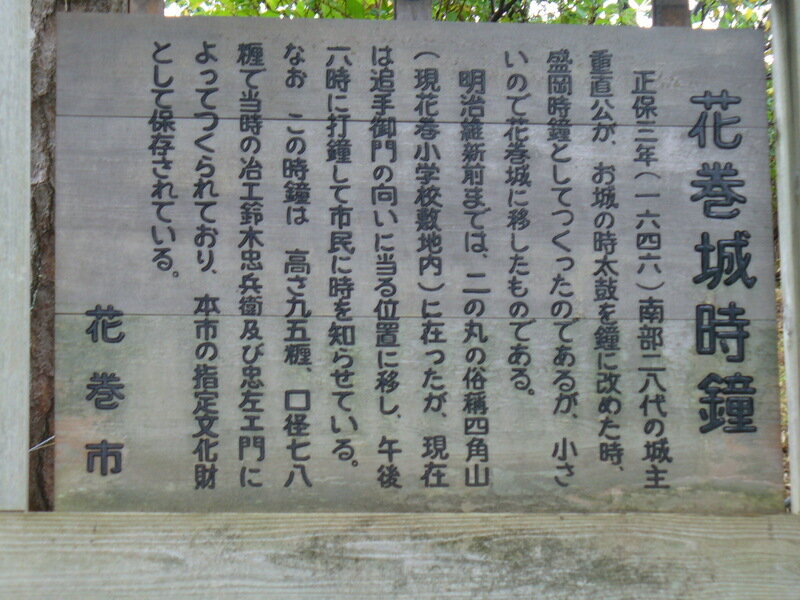 花巻城時鐘
正保三年(一六四六)南部二八代の城主
重直公が、お城の時太鼓を鐘に改めた時、
盛岡時鐘としてつくったのであるが、小さ
いので花巻城に移したものである。
明治維新前までは、二の丸の俗称四角山
(現花巻小学校敷地内)に在ったが、現在
は追手御門の向いに当る位置に移し、午後
六時に打鐘して市民に時を知らせている。
なお この時鐘は 高さ九五糎、口径七八
糎で当時の冶工鈴木忠兵衛及び忠左エ門に
よってつくられており、本市の指定文化財
として保存されている。
花巻市